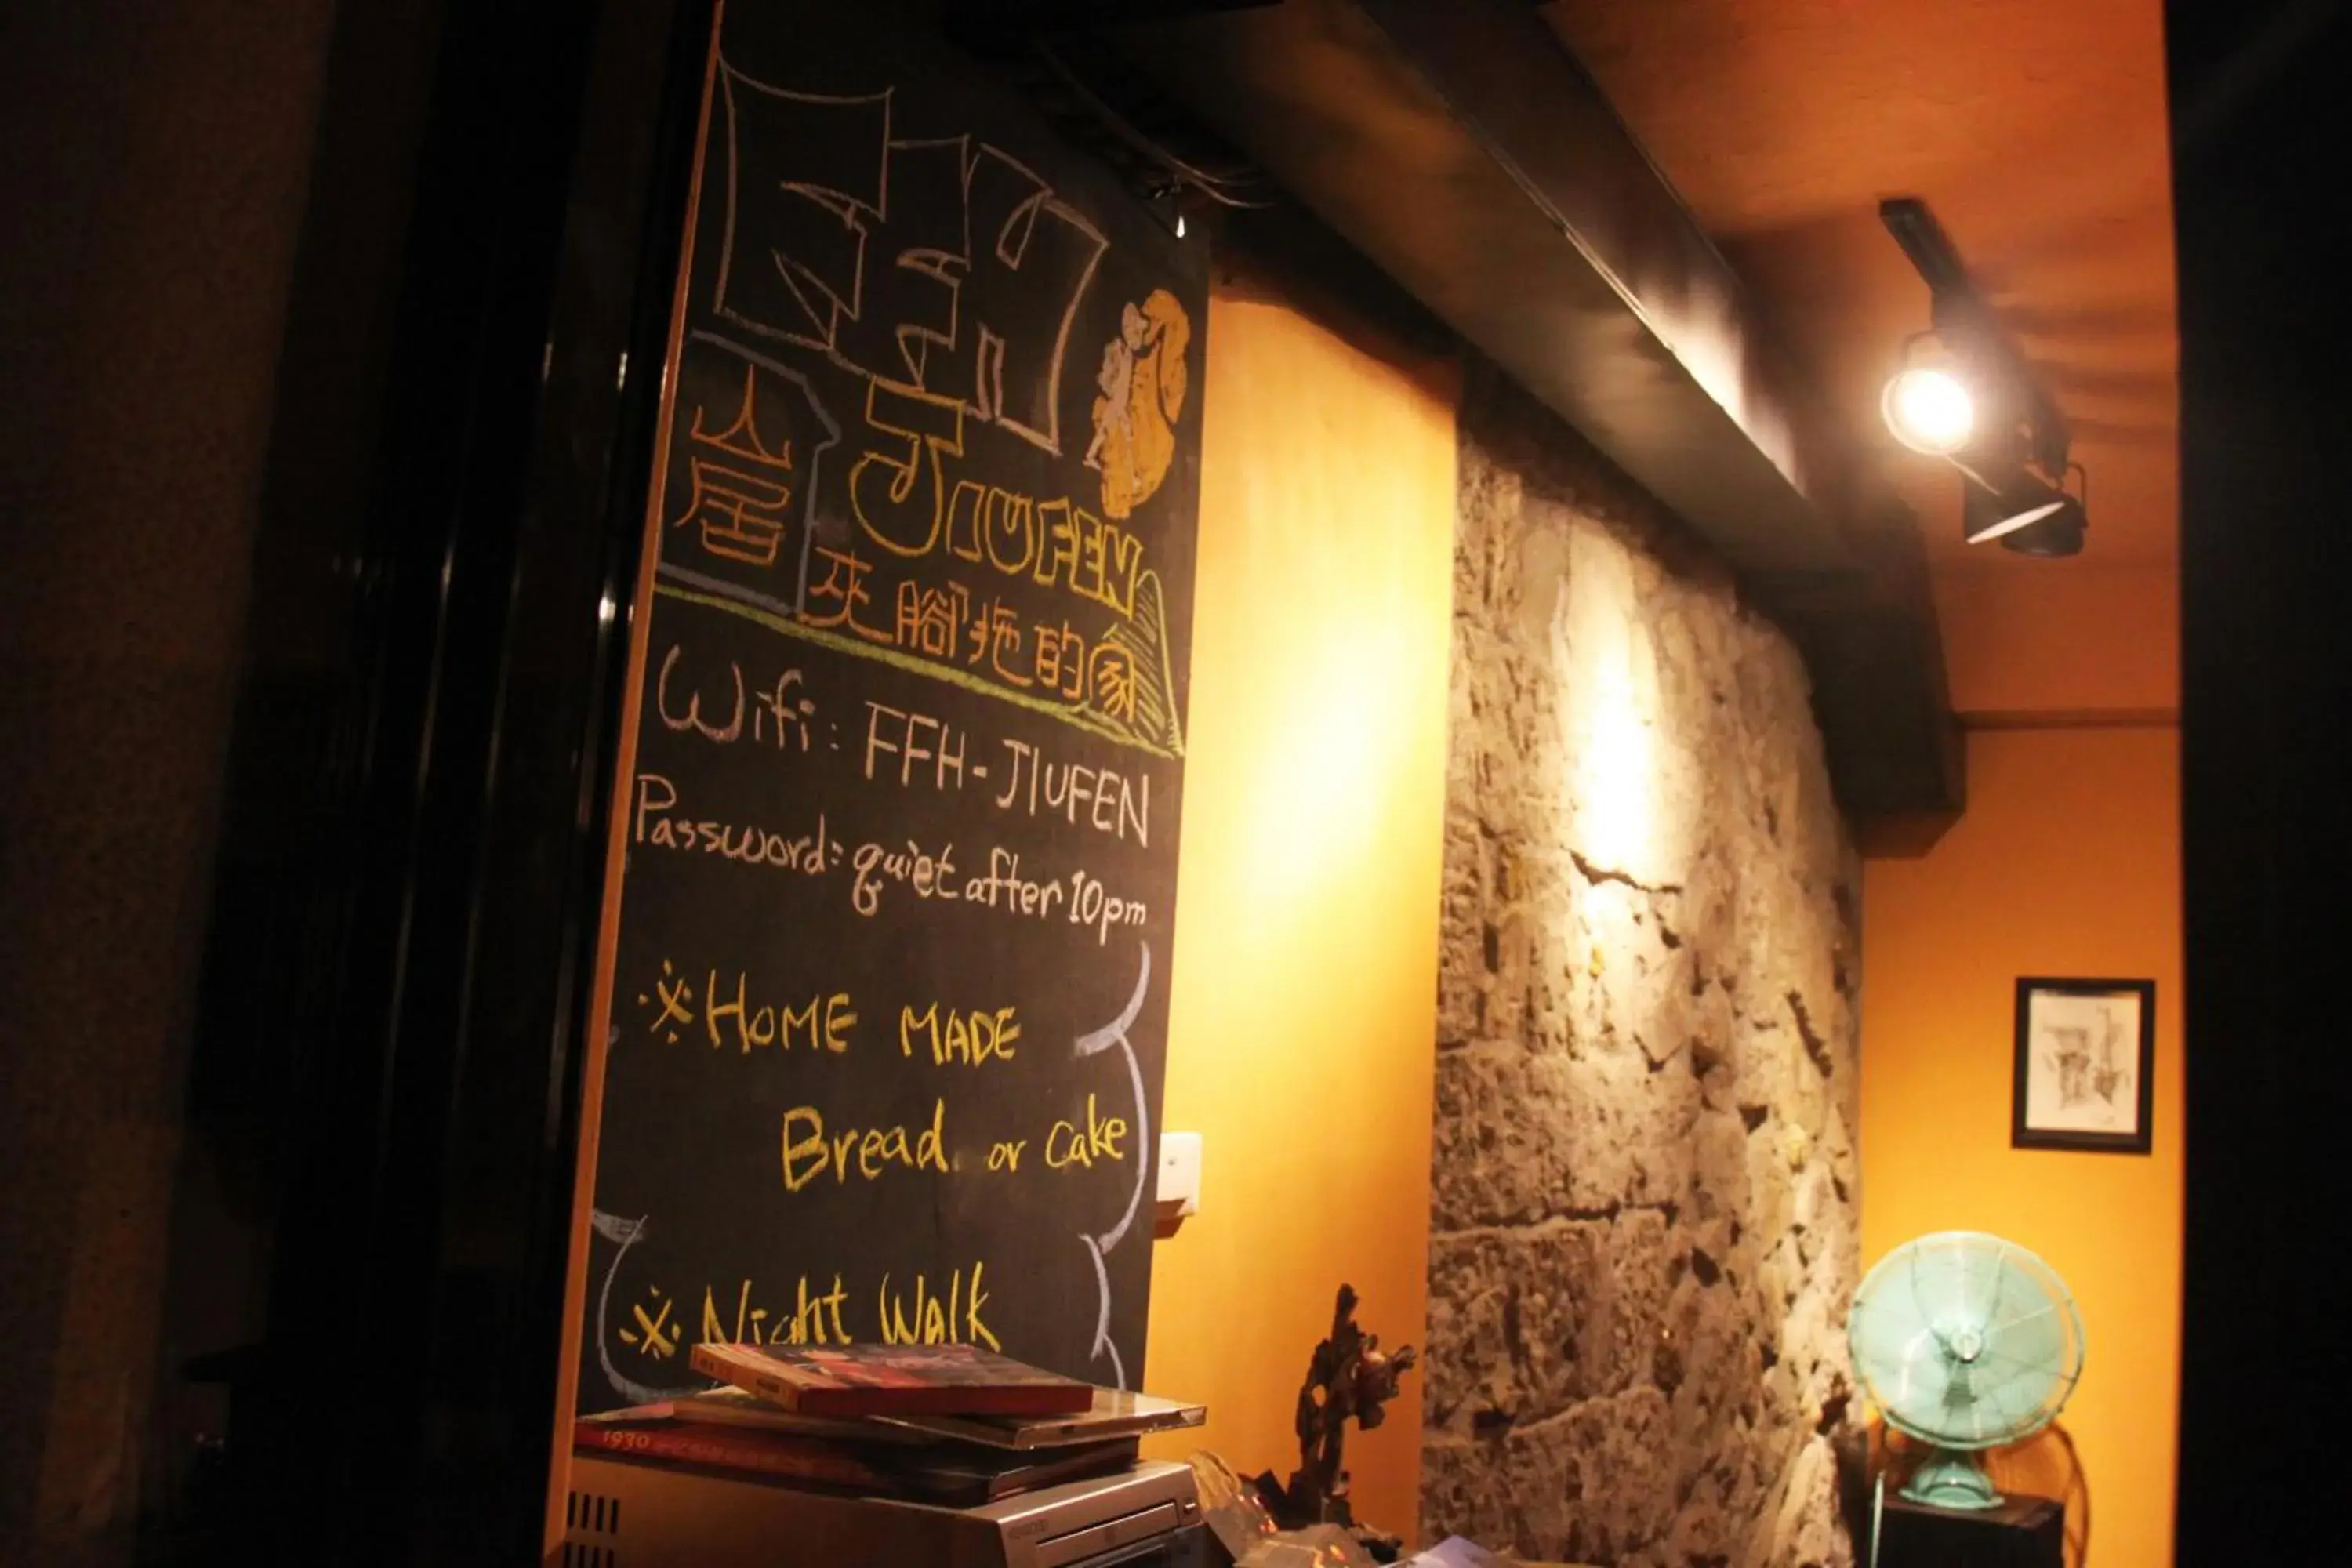 FFH
JIUFEN
山居
夾腳拖的家
Wifi: FFH-JIUFEN
Password: quiet after 10pm
※HOME MADE
Bread or Cake
※Night Walk
1930